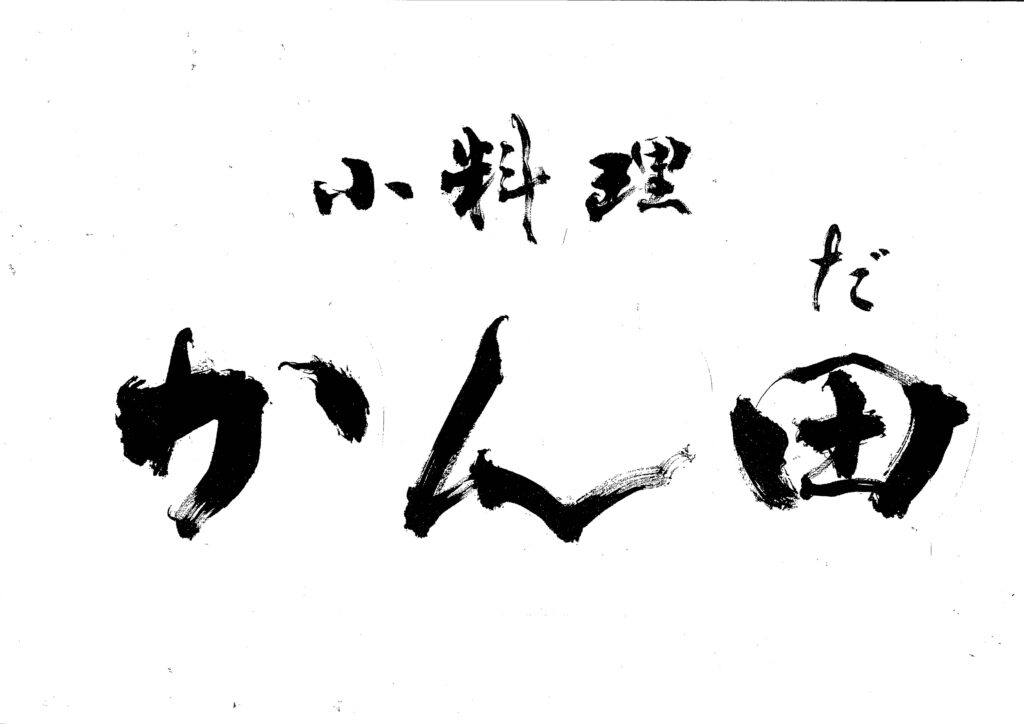 小料理
だ
かん田